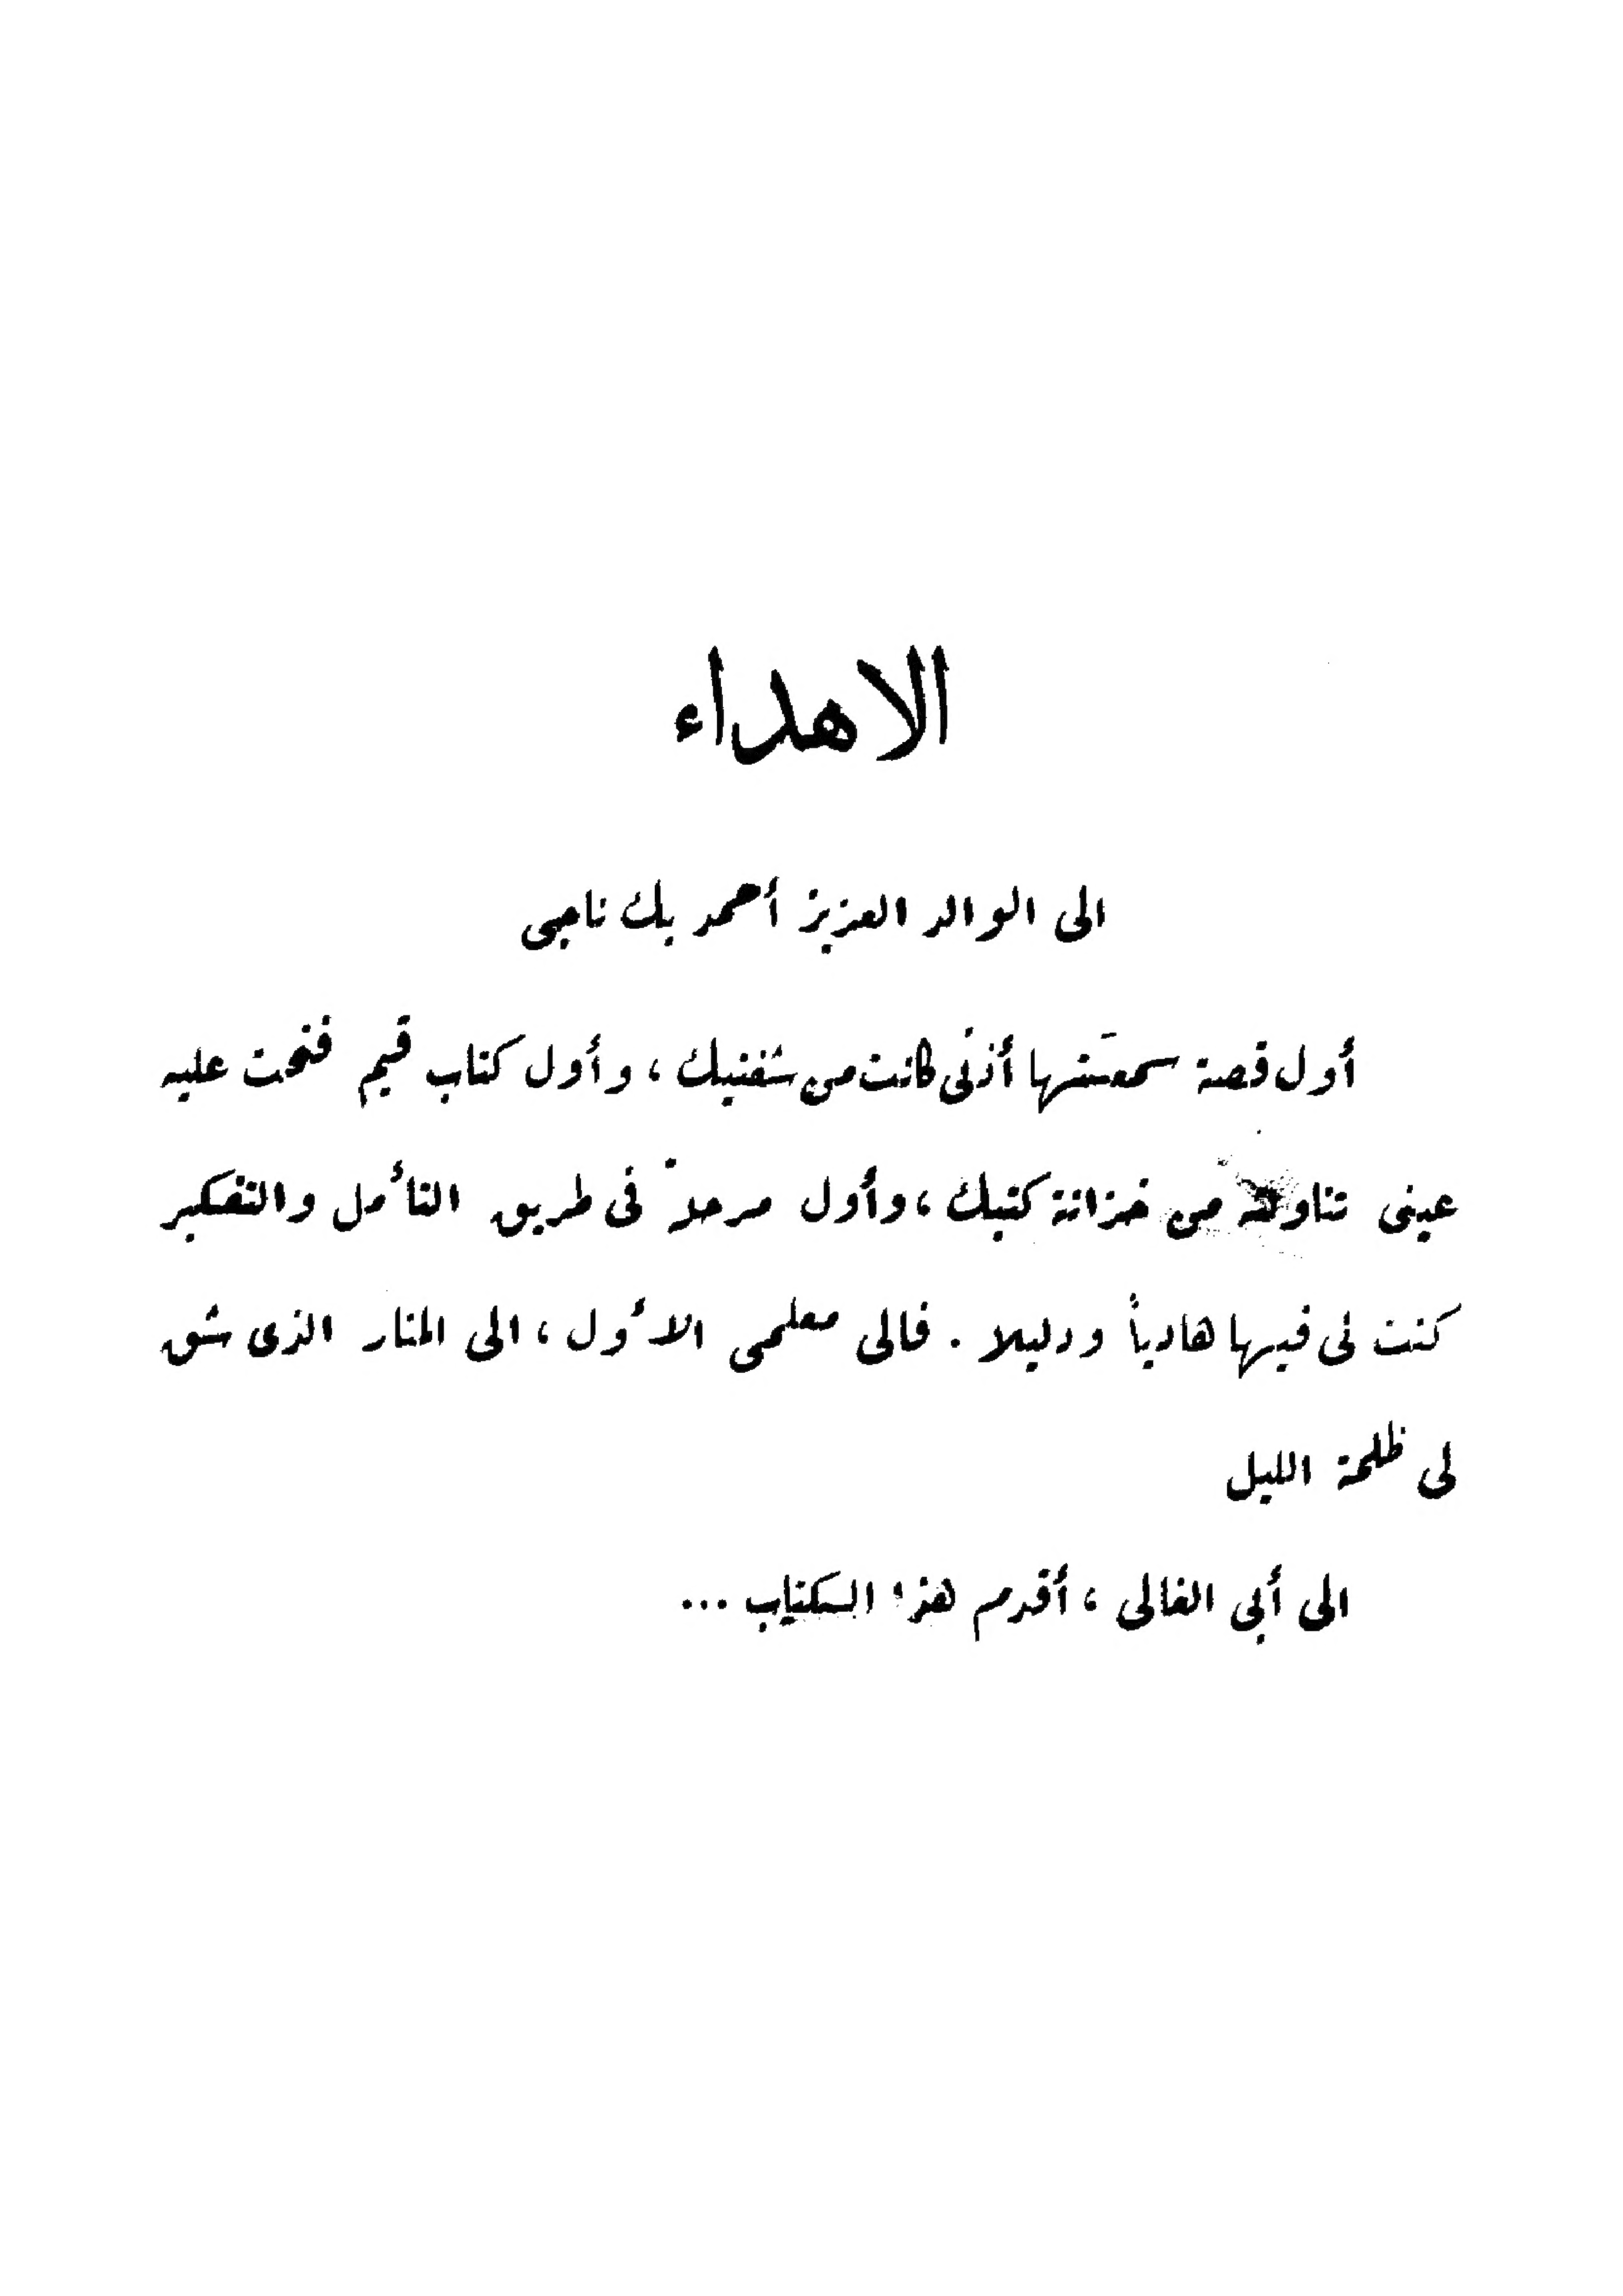 الاهداء
الى الوالد العزيز أحمد بك ناجى
أول قصة سمعَتها أذنى كانت من شفتيك ، وأول كتاب قيم فتحت عليه
عينى من خزانة كتبك ، وأول مرحلة فى طريق التأمل والتفكير
كنت لى فيها هادياً ودليلا . فالى معلمى الأول ، الى المنار الذى شق
لى ظلمة الليل
الى أبى الغالى ، أقدم هذا الكتاب ...